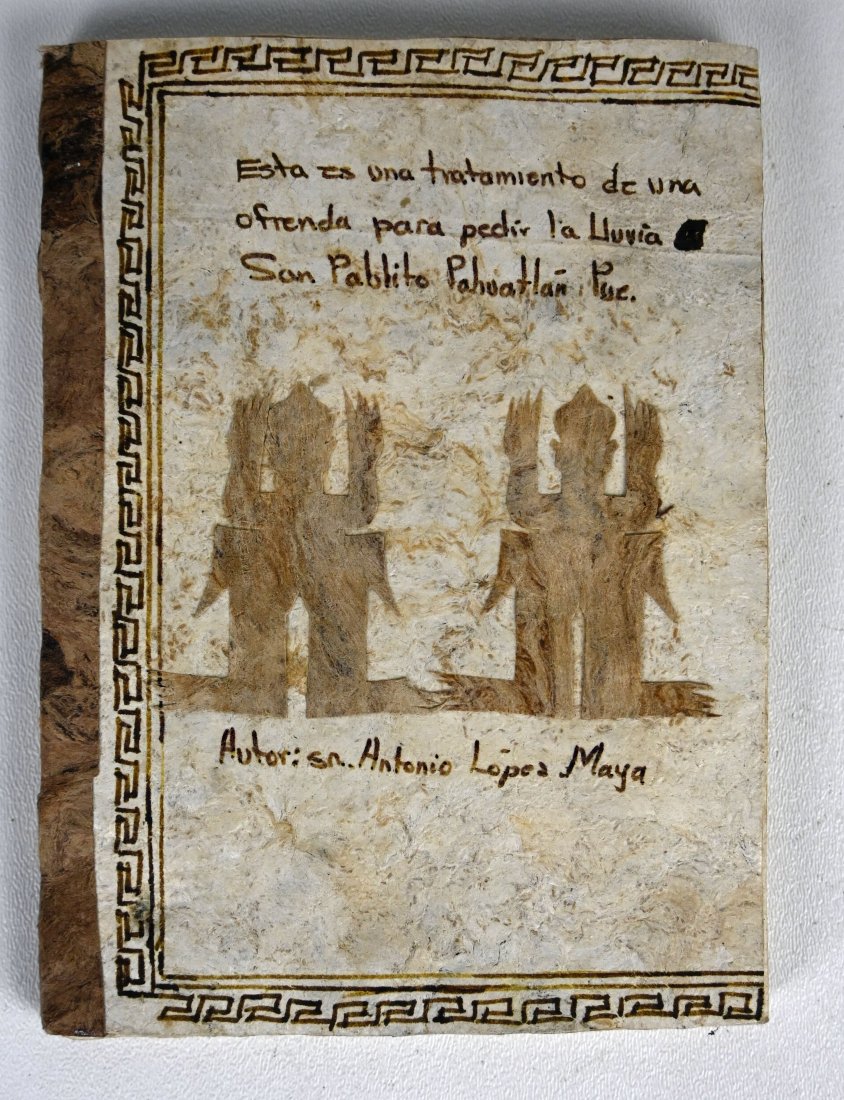 Esta es una tratamiento de una
ofrenda para pedir la Lluvia
San Pablito Pahuatlán Pue.
Autor: sr. Antonio López Maya